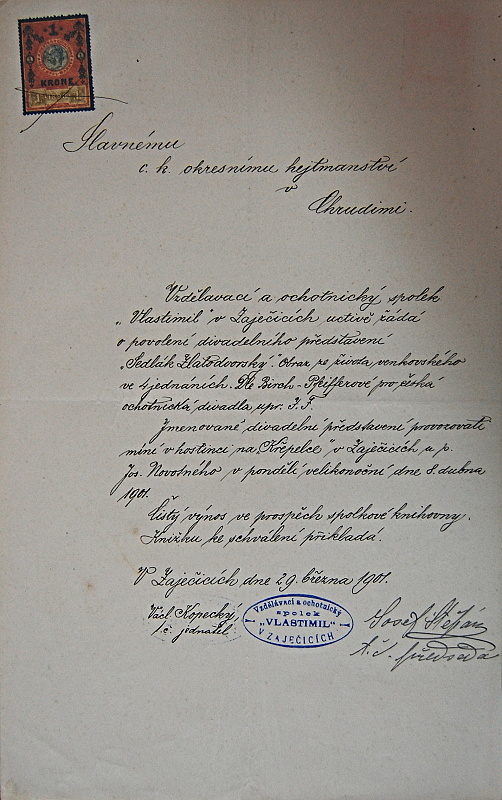 1
KRONE
Slavnému
c. k. okresnímu hejtmanství
v
Chrudimi.
Vzdělavací a ochotnický spolek
„Vlastimil" v Zaječicích uctivě žádá
o povolení divadelního představení
„Sedlák Zlatodvorský". Obraz ze života venkovského
ve 4 jednáních. Dle Birch-Pfeifferové pro česká
ochotnická divadla upr. J. F.
Jmenované divadelní představení provozovati
míní v hostinci na „Křepelce" v Zaječicích u p.
Jos. Novotného v pondělí velikonoční dne 8. dubna
1901.
Čistý výnos ve prospěch spolkové knihovny.
Knihu ke schválení přikládá.
V Zaječicích dne 29. března 1901.
Václ. Kopecký
t. č. jednatel
Vzdělávací a ochotnický
spolek
„VLASTIMIL"
V ZAJEČICÍCH
Josef Štěpán
t. č. předseda